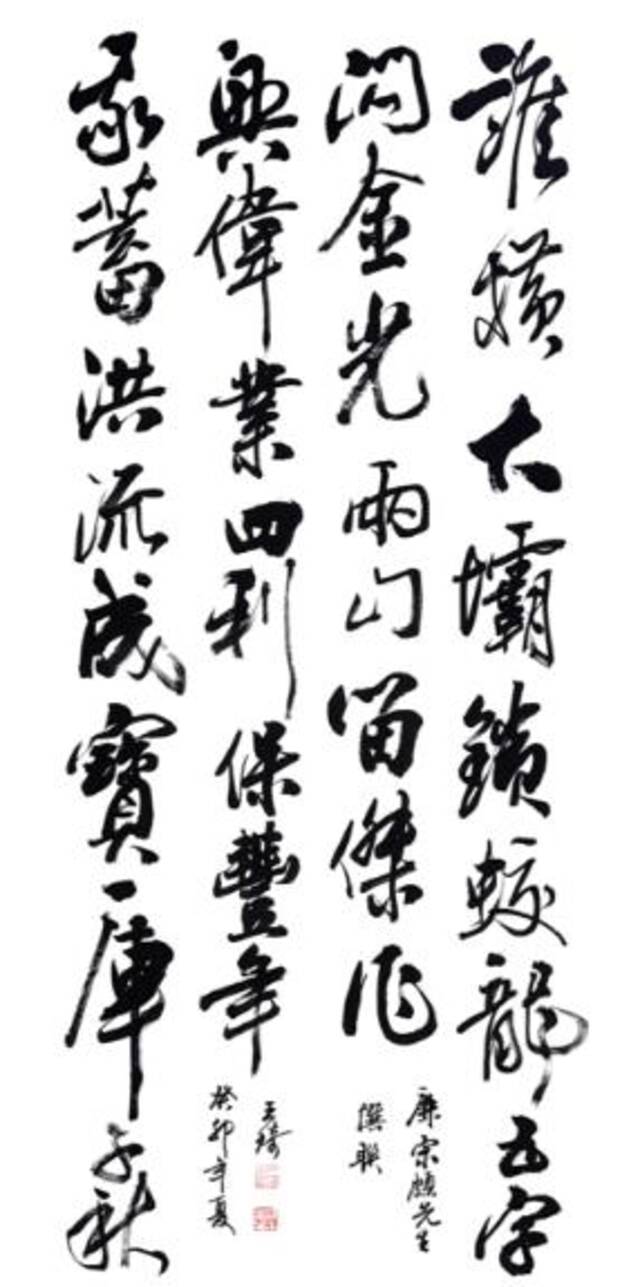 誰橫大壩鎖蛟龍五字
閃金光兩山留傑作
廉宗頗先生
撰聯
我蓄洪流成寶庫千秋
興偉業四利保豐年
癸卯年夏
王琦